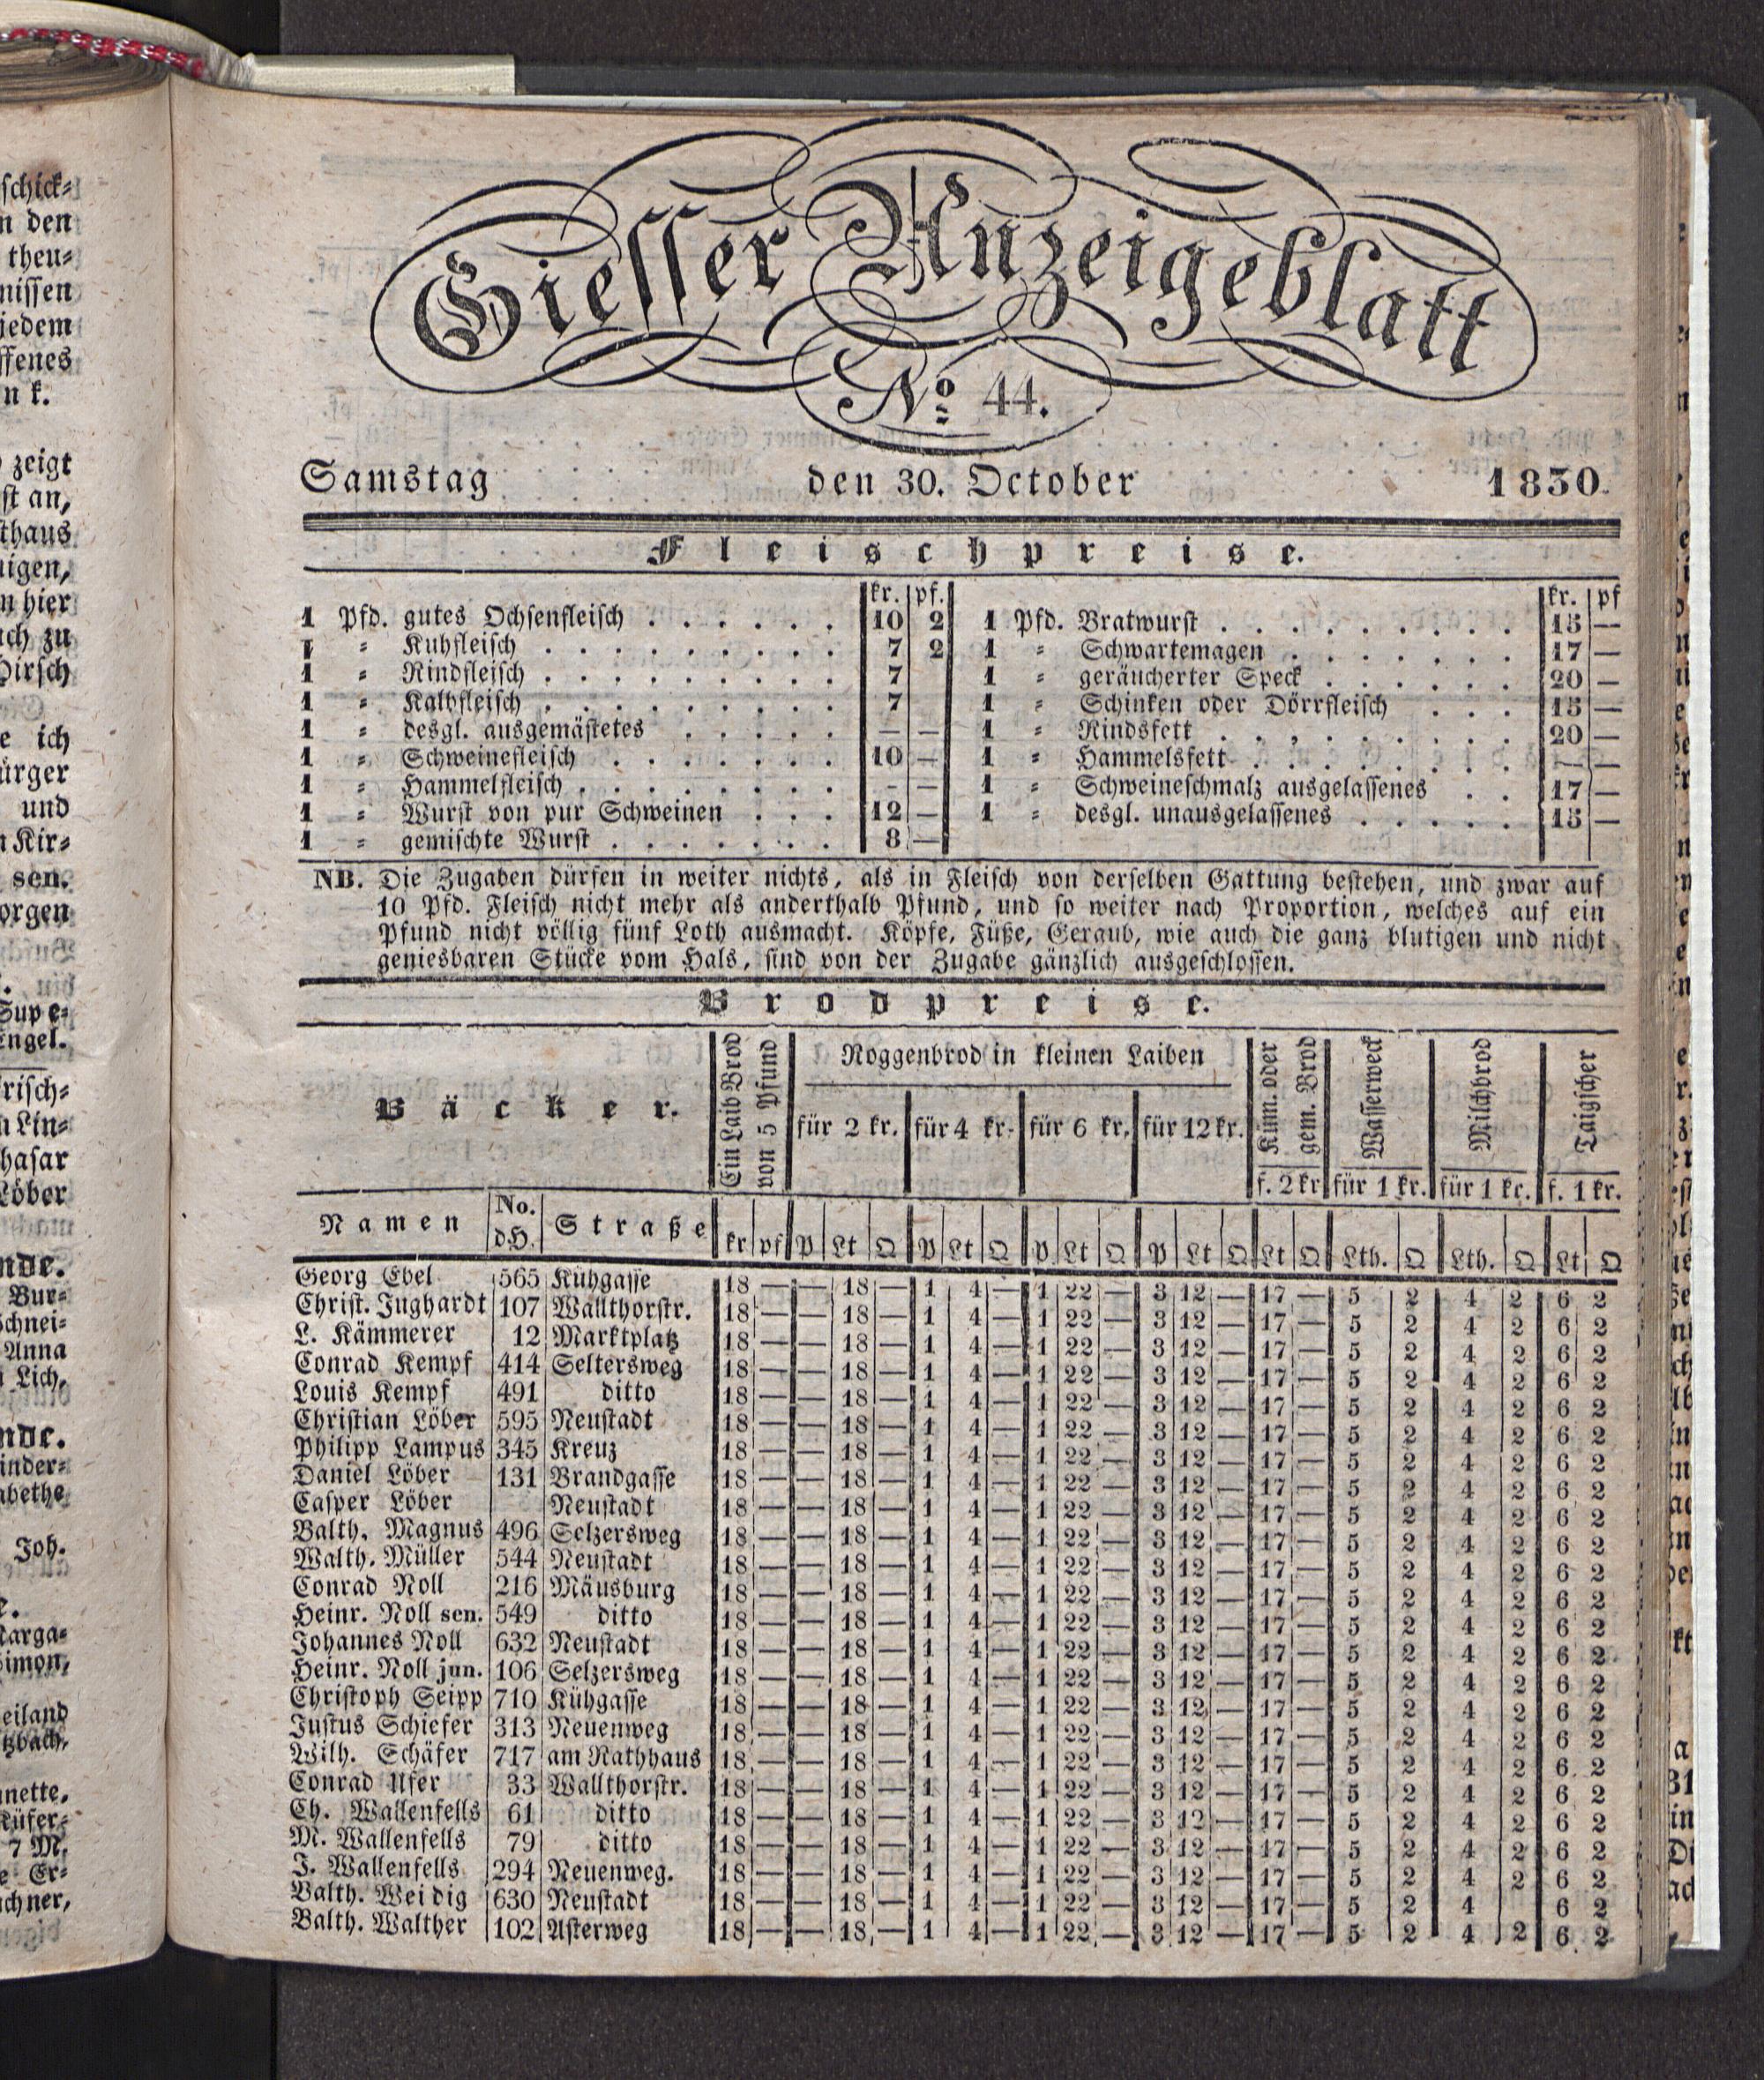 schick⸗
n den
theu⸗
nissen
jedem
ffenes
n k.
zeigt
st an,
sthaus
nigen,
n hier
uch zu
Hirsch
e ich
ürger
und
n Kir⸗
sen.
orgen
Supe⸗
Engel.
risch⸗
n Lin⸗
hasar
Löber
nde.
Bur⸗
Schnei⸗
Anna
Lich,
nde.
inder⸗
abethe
Joh.
e.
Marga⸗
Simon,
eiland
tzbach,
nnette,
Küfer⸗
7 M.
e Er⸗
uchner,
Giesser Anzeigeblatt
No 44.
Samstag den 30. October 1830.
Fleischpreise.
kr. pf.
1 Pfd. gutes Ochsenfleisch . . . . . . 10 2
1 ⸗ Kuhfleisch . . . . . . . . . 7 2
1 ⸗ Rindfleisch . . . . . . . . . 7
1 ⸗ Kalbfleisch . . . . . . . . . 7
1 ⸗ desgl. ausgemästetes . . . . . — —
1 ⸗ Schweinefleisch . . . . . . . 10 —
1 ⸗ Hammelfleisch . . . . . . . . - —
1 ⸗ Wurst von pur Schweinen . . . 12 —
1 ⸗ gemischte Wurst . . . . . . . 8 —
kr. pf
1 Pfd. Bratwurst . . . . . . . . . 15 —
1 ⸗ Schwartemagen . . . . . . . 17 —
1 ⸗ geräucherter Speck . . . . . . 20 —
1 ⸗ Schinken oder Dörrfleisch . . . 15 —
1 ⸗ Rindsfett . . . . . . . . . 20 —
1 ⸗ Hammelsfett . . . . . . . . — —
1 ⸗ Schweineschmalz ausgelassenes . . 17 —
1 ⸗ desgl. unausgelassenes . . . . . 15 —
NB. Die Zugaben dürfen in weiter nichts, als in Fleisch von derselben Gattung bestehen, und zwar auf
10 Pfd. Fleisch nicht mehr als anderthalb Pfund, und so weiter nach Proportion, welches auf ein
Pfund nicht völlig fünf Loth ausmacht. Köpfe, Füße, Geraub, wie auch die ganz blutigen und nicht
geniesbaren Stücke vom Hals, sind von der Zugabe gänzlich ausgeschlossen.
Brodpreise.
Bäcker.
Ein Laib Brod
von 5 Pfund
Roggenbrod in kleinen Laiben
für 2 kr. für 4 kr. für 6 kr. für 12 kr.
Küm. oder
gem. Brod
f. 2 kr
Wasserweck
für 1 kr.
Milchbrod
für 1 kr.
Taigscher
f. 1 kr.
Namen No. d.H. Straße kr pf P Lt Q P Lt Q P Lt Q P Lt Q Lt Q Lth. Q Lth. Q Lt Q
Georg Ebel 565 Kühgasse 18 — — 18 — 1 4 — 1 22 — 3 12 — 17 — 5 2 4 2 6 2
Christ. Jughardt 107 Wallthorstr. 18 — — 18 — 1 4 — 1 22 — 3 12 — 17 — 5 2 4 2 6 2
L. Kämmerer 12 Marktplatz 18 — — 18 — 1 4 — 1 22 — 3 12 — 17 — 5 2 4 2 6 2
Conrad Kempf 414 Seltersweg 18 — — 18 — 1 4 — 1 22 — 3 12 — 17 — 5 2 4 2 6 2
Louis Kempf 491 ditto 18 — — 18 — 1 4 — 1 22 — 3 12 — 17 — 5 2 4 2 6 2
Christian Löber 595 Neustadt 18 — — 18 — 1 4 — 1 22 — 3 12 — 17 — 5 2 4 2 6 2
Philipp Lampus 345 Kreuz 18 — — 18 — 1 4 — 1 22 — 3 12 — 17 — 5 2 4 2 6 2
Daniel Löber 131 Brandgasse 18 — — 18 — 1 4 — 1 22 — 3 12 — 17 — 5 2 4 2 6 2
Casper Löber Neustadt 18 — — 18 — 1 4 — 1 22 — 3 12 — 17 — 5 2 4 2 6 2
Balth. Magnus 496 Selzersweg 18 — — 18 — 1 4 — 1 22 — 3 12 — 17 — 5 2 4 2 6 2
Walth. Müller 544 Neustadt 18 — — 18 — 1 4 — 1 22 — 3 12 — 17 — 5 2 4 2 6 2
Conrad Noll 216 Mäusburg 18 — — 18 — 1 4 — 1 22 — 3 12 — 17 — 5 2 4 2 6 2
Heinr. Noll sen. 549 ditto 18 — — 18 — 1 4 — 1 22 — 3 12 — 17 — 5 2 4 2 6 2
Johannes Noll 632 Neustadt 18 — — 18 — 1 4 — 1 22 — 3 12 — 17 — 5 2 4 2 6 2
Heinr. Noll jun. 106 Selzersweg 18 — — 18 — 1 4 — 1 22 — 3 12 — 17 — 5 2 4 2 6 2
Christoph Seipp 710 Kühgasse 18 — — 18 — 1 4 — 1 22 — 3 12 — 17 — 5 2 4 2 6 2
Justus Schiefer 313 Neuenweg 18 — — 18 — 1 4 — 1 22 — 3 12 — 17 — 5 2 4 2 6 2
Wilh. Schäfer 717 am Rathhaus 18 — — 18 — 1 4 — 1 22 — 3 12 — 17 — 5 2 4 2 6 2
Conrad Ufer 33 Wallthorstr. 18 — — 18 — 1 4 — 1 22 — 3 12 — 17 — 5 2 4 2 6 2
Ch. Wallenfells 61 ditto 18 — — 18 — 1 4 — 1 22 — 3 12 — 17 — 5 2 4 2 6 2
M. Wallenfells 79 ditto 18 — — 18 — 1 4 — 1 22 — 3 12 — 17 — 5 2 4 2 6 2
J. Wallenfells 294 Neuenweg. 18 — — 18 — 1 4 — 1 22 — 3 12 — 17 — 5 2 4 2 6 2
Balth. Weidig 630 Neustadt 18 — — 18 — 1 4 — 1 22 — 3 12 — 17 — 5 2 4 6 2
Balth. Walther 102 Asterweg 18 — — 18 — 1 4 — 1 22 — 3 12 — 17 — 5 2 4 2 6 2